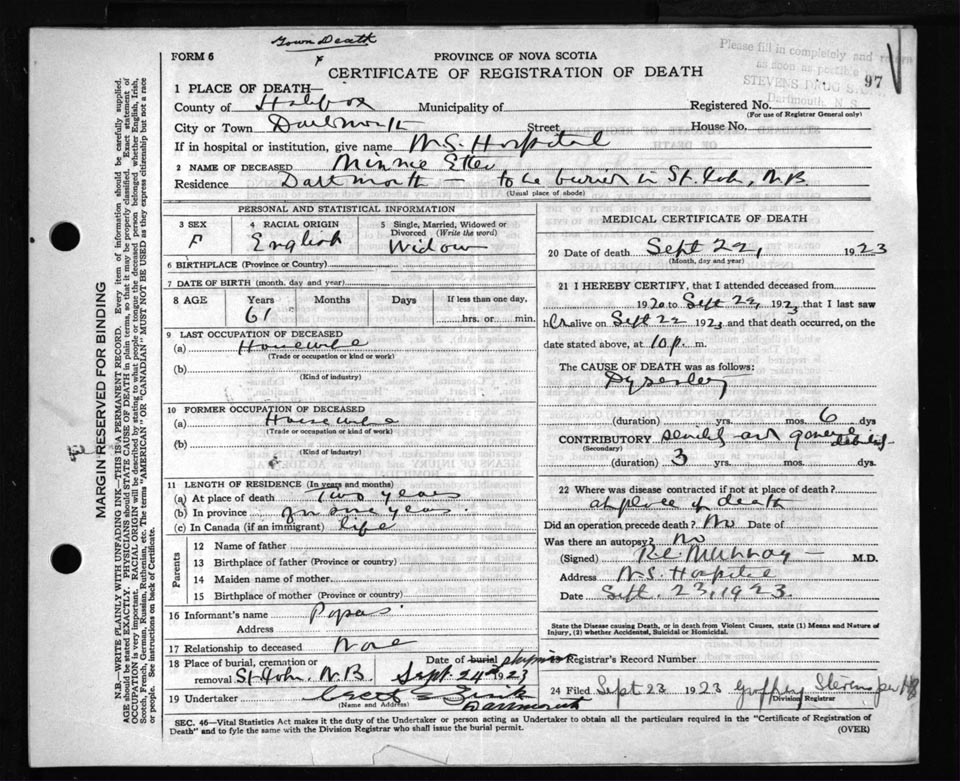 Town Death
FORM 6
PROVINCE OF NOVA SCOTIA
Please fill in completely and return
as soon as possible to
STEVENS DRUG STORE
Dartmouth, N. S.
97
CERTIFICATE OF REGISTRATION OF DEATH
1 PLACE OF DEATH—
County of Halifax Municipality of Registered No.
(For use of Registrar General only)
City or Town Dartmouth Street House No.
If in hospital or institution, give name N.S. Hospital
2 NAME OF DECEASED Minnie
Residence Dartmouth – to be buried in St. John, N.B.
(Usual place of abode)
PERSONAL AND STATISTICAL INFORMATION
3 SEX
F
4 RACIAL ORIGIN
English
5 Single, Married, Widowed or
Divorced (Write the word)
Widow
6 BIRTHPLACE (Province or Country)
7 DATE OF BIRTH (month, day and year)
8 AGE Years Months Days If less than one day,
61 hrs. or min.
9 LAST OCCUPATION OF DECEASED
(a) Housewife
(Trade or occupation or kind or work)
(b)
(Kind of industry)
10 FORMER OCCUPATION OF DECEASED
(a) Housewife
(Trade or occupation or kind of work)
(b)
(Kind of industry)
11 LENGTH OF RESIDENCE (In years and months)
(a) At place of death Two years
(b) In province years.
(c) In Canada (if an immigrant) life
Parents
12 Name of father
13 Birthplace of father (Province or country)
14 Maiden name of mother
15 Birthplace of mother (Province or Country)
16 Informant's name Papers
Address
17 Relationship to deceased None
18 Place of burial, cremation or
removal St. John, N.B.
Date of burial shipment
Sept. 24th 1923
19 Undertaker
(Name and Address)
Dartmouth
MEDICAL CERTIFICATE OF DEATH
20 Date of death Sept 22, 1923
(Month, day and year)
21 I HEREBY CERTIFY, that I attended deceased from
1920 to Sept 22 1923, that I last saw
her alive on Sept 22 1923 and that death occurred, on
date stated above, at 10 p. m.
The CAUSE OF DEATH was as follows:
Dysentery
(duration) yrs. mos. 6 dys
CONTRIBUTORY senility and general debility
(Secondary)
(duration) 3 yrs. mos. dys.
22 Where was disease contracted if not at place of death?
at place of death
Did an operation precede death? No Date of
Was there an autopsy? no
(Signed) Murray – M.D.
Address N.S. Hospital
Date Sept. 23, 1923.
State the Disease causing Death, or in death from Violent Causes, state (1) Means and Nature of
Injury, (2) whether Accidental, Suicidal or Homicidal.
Registrar's Record Number
24 Filed Sept 23 1923 Geoffrey Stevens per
Division Registrar
SEC. 46—Vital Statistics Act makes it the duty of the Undertaker or person acting as Undertaker to obtain all the particulars required in the "Certificate of Registration of
Death" and to fyle the same with the Division Registrar who shall issue the burial permit.
(OVER)
MARGIN RESERVED FOR BINDING
N.B.—WRITE PLAINLY WITH UNFADING INK—THIS IS A PERMANENT RECORD. Every item of information should be carefully supplied.
AGE should be stated EXACTLY. PHYSICIANS should STATE CAUSE OF DEATH in plain terms, so that it may be properly classified. Exact statement of
OCCUPATION is very important. RACIAL ORIGIN will be described by stating to what people or tongue the deceased person belonged whether English, Irish,
Scotch, French, German, Russian, Ruthenian, etc. The terms "AMERICAN" OR "CANADIAN" MUST NOT BE USED as they express citizenship but not a race
or people. See instructions on back of Certificate.